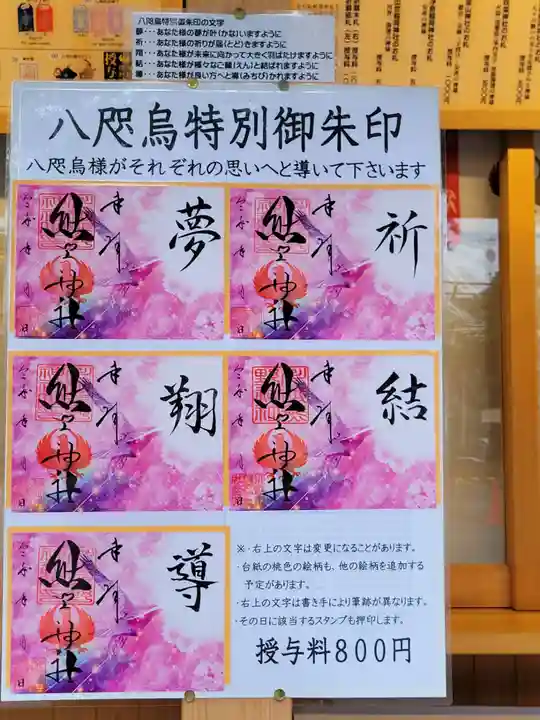 八咫烏特別御朱印の文字
夢・・・あなた様の夢が叶(かな)いますように
祈・・・あなた様の祈りが届(とど)きますように
翔・・・あなた様が未来に向かって大きく羽ばたけますように
結・・・あなた様が様々なご縁(えん)と結ばれますように
導・・・あなた様が良い方へと導(みちび)かれますように
八咫烏特別御朱印
八咫烏様がそれぞれの思いへと導いて下さいます
夢
奉拝
熊野神社
令和 年 月 日
祈
奉拝
熊野神社
令和 年 月 日
翔
奉拝
熊野神社
令和 年 月 日
結
奉拝
熊野神社
令和 年 月 日
導
奉拝
熊野神社
令和 年 月 日
※・右上の文字は変更になることがあります。
・台紙の桃色の絵柄も、他の絵柄を追加する
予定があります。
・右上の文字は書き手により筆跡が異なります。
・その日に該当するスタンプも押印します。
授与料800円